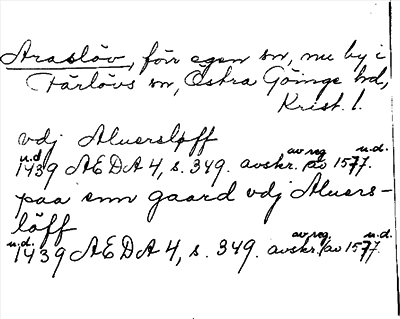 Araslöv, förr egen sn, nu by i
Färlövs sn, Östra Göinge hd,
Krist. l.
vdj Aluersløff
u.d. 1439 ÆDA 4, s. 349. avskr. av reg. av 1577. u.d.
paa enn gaard vdj Aluers-
løff
u.d. 1439 ÆDA 4, s. 349. avskr. av reg. av 1577. u.d.